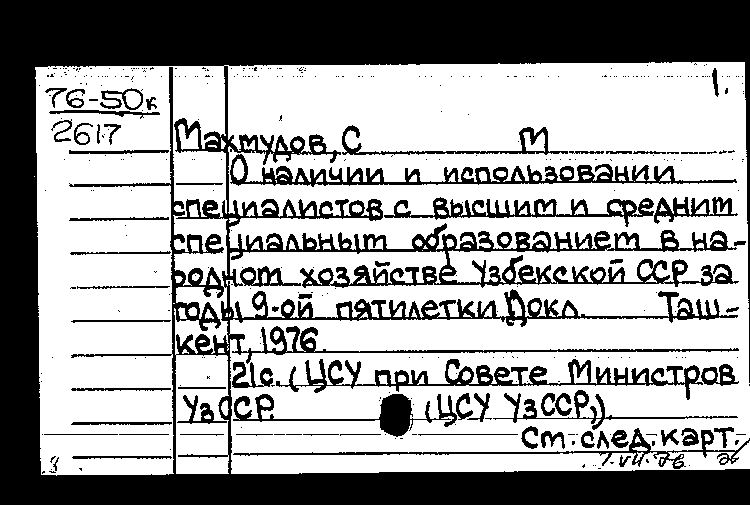 1.
76-50к
2617
Махмудов, С М
О наличии и использовании
специалистов с высшим и средним
специальным образованием в на-
родном хозяйстве Узбекской ССР за
годы 9-ой пятилетки. Докл. Таш-
кент, 1976.
21с. (ЦСУ при Совете Министров
УзССР. (ЦСУ УзССР,).
См. след. карт.
7.VII.76